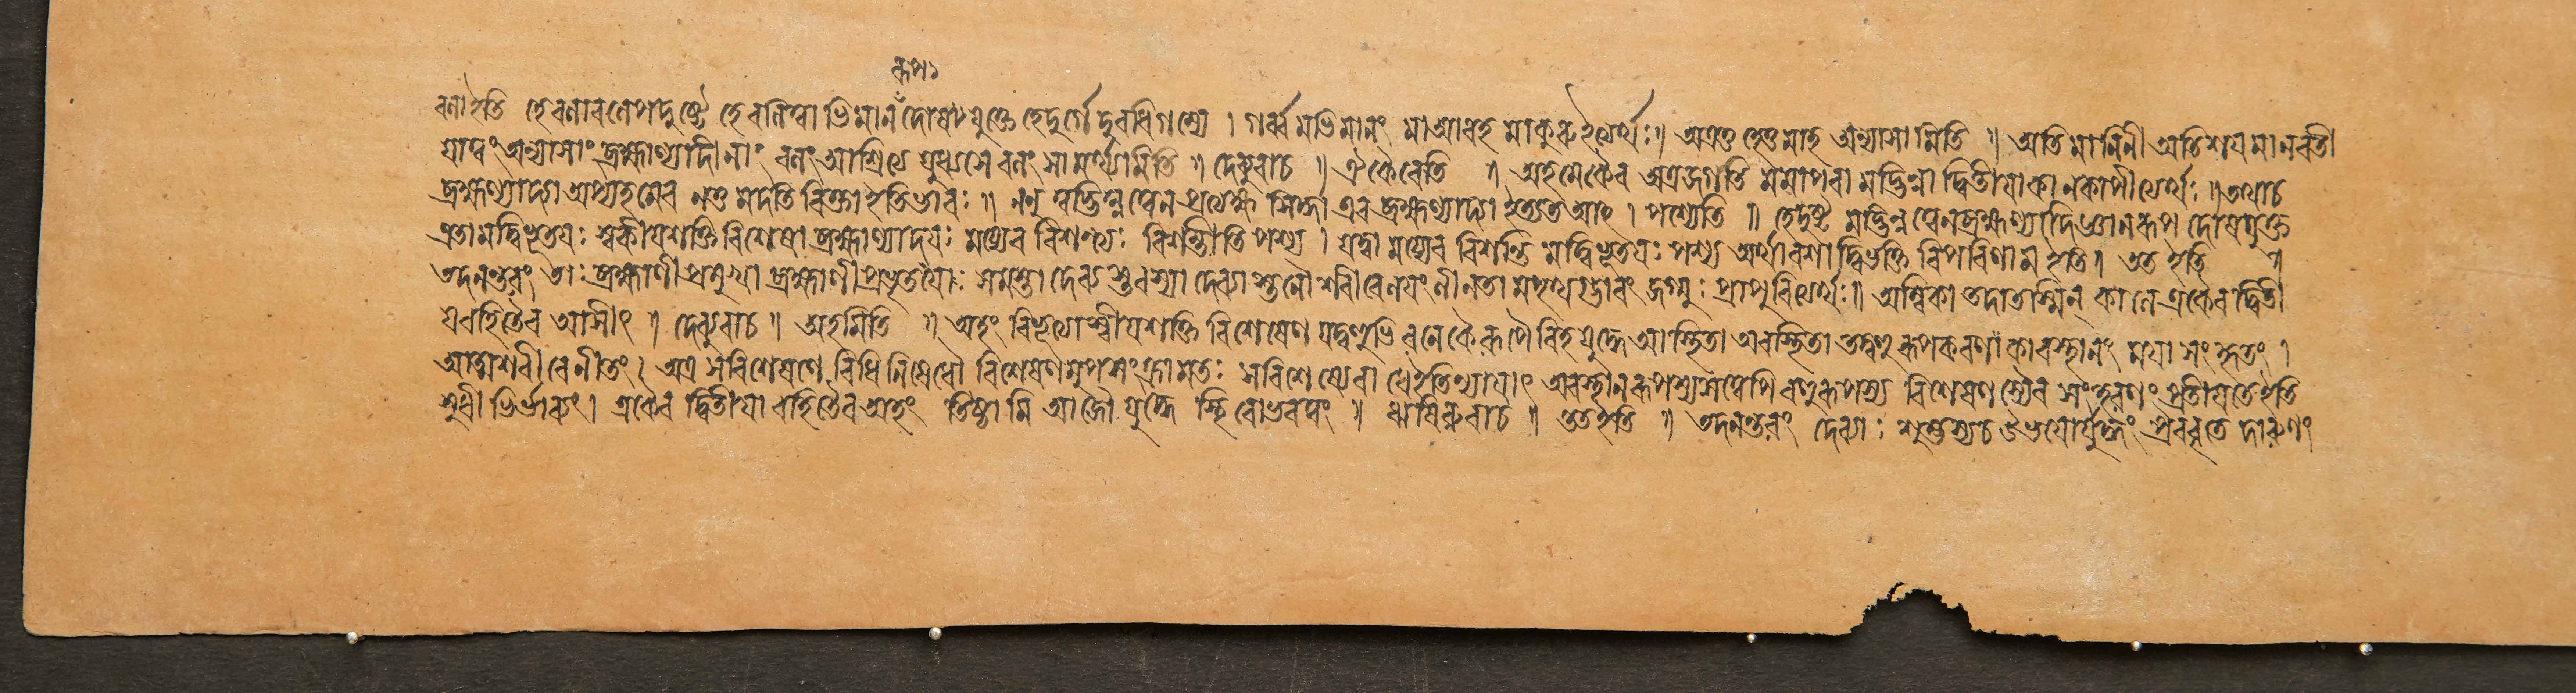 রূপ১
বলা ইতি হে বলাবলেপদুষ্টে হে বলনিম্বাভিমান দোষ যুক্তে হে দুর্গে দুরধিগম্যে । গর্ব্বমভিমানং মা আবহ মা কুরু ইত্যর্থঃ ॥ অত্রতু হেতুমাহ অন্যাসামিতি ॥ অতিমানিনী অতিশয়মানবতী
যা ত্বং অন্যাসাং ব্রহ্মাণ্যাদীনাং বলং আশ্রিত্যে যুধ্যসে বলং সামর্থ্যমিতি ॥ দেব্যুবাচ ॥ ঐকৈবেতি ॥ অহমেকৈব অত্রজগতি মমাপরা মদ্ভিন্না দ্বিতীয়া কা ন কাপীত্যর্থঃ ॥ তথাচ
ব্রহ্মাণ্যাদ্যা অপ্যহমেব নতু মদতিরিক্তা ইতিভাবঃ ॥ ননু ত্বদ্ভিন্নত্বেন প্রত্যক্ষ সিদ্ধা এব ব্রহ্মাণ্যাদ্যা ইত্যত আহ । পশ্যেতি ॥ হে দুষ্ট মদ্ভিন্নত্বেন ব্রহ্মাণ্যাদি জ্ঞানরূপ দোষযুক্ত
এতা মদ্বিভূতয়ঃ স্বকীয়শক্তি বিশেষা ব্রহ্মাণ্যাদয়ঃ ময্যেব বিশন্ত্যঃ বিশন্তীতি পশ্য । যদ্বা ময্যেব বিশন্তি মদ্বিভূতয়ঃ পশ্য অর্থবশাদ্বিভক্তি বিপরিণাম ইতি । তত ইতি ॥
তদনন্তরং তাঃ ব্রহ্মাণী প্রমুখা ব্রহ্মাণী প্রভৃতয়ঃ সমস্তা দেব্য স্তস্যা দেব্যা স্তনৌ শরীরে লয়ং লীনতা মপৃথগ্ভাবং জগ্মুঃ প্রাপুরিত্যর্থঃ ॥ অম্বিকা তদা তাস্মিন্ কালে একৈব দ্বিতী
য়রহিতৈব আসীৎ ॥ দেব্যুবাচ ॥ অহমিতি ॥ অহং বিভূত্যা স্বীয়শক্তি বিশেষেণ যদ্বহুভি রনেকৈ রূপৈরিহ যুদ্ধে আস্থিতা অবস্থিতা তদ্বহু রূপকরণা কাবস্থানং ময়া সংহৃতং ।
আত্মশরীরে নীতং । অত্র সবিশেষণে বিধি নিষেধৌ বিশেষণমুপসংক্রামতঃ সবিশেষ্যে বাধে ইতি ন্যায়াৎ অবস্থানরূপস্য সত্ত্বেপি বহুরূপস্য বিশেষণস্যৈব সংহরণং প্রতীয়তে ইতি
সুধীভির্ভাব্যং । একৈব দ্বিতীয়া রহিতৈব অহং তিষ্ঠামি আজৌ যুদ্ধে স্থিরোভবত্বং ॥ ঋষিরুবাচ ॥ তত ইতি ॥ তদনন্তরং দেব্যাঃ শুম্ভস্যচ উভয়োর্যুদ্ধং প্রববৃতে দারুণং